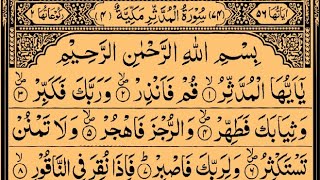 اٰیَاتُهَا ٥٦ (٧٤) سُوْرَةُ الْمُدَّثِّرِ مَكِّیَّةٌ (٤) رُكُوْعَاتُهَا ٢
بِسْمِ اللّٰهِ الرَّحْمٰنِ الرَّحِیْمِ
یٰۤاَیُّهَا الْمُدَّثِّرُ ۙ﴿١﴾ قُمْ فَاَنْذِرْ ۙ﴿٢﴾ وَرَبَّكَ فَكَبِّرْ ۙ﴿٣﴾
وَثِیَابَكَ فَطَهِّرْ ۙ﴿٤﴾ وَالرُّجْزَ فَاهْجُرْ ۙ﴿٥﴾ وَلَا تَمْنُنْ
تَسْتَكْثِرُ ۙ﴿٦﴾ وَلِرَبِّكَ فَاصْبِرْ ؕ﴿٧﴾ فَاِذَا نُقِرَ فِی النَّاقُوْرِ ۙ﴿٨﴾